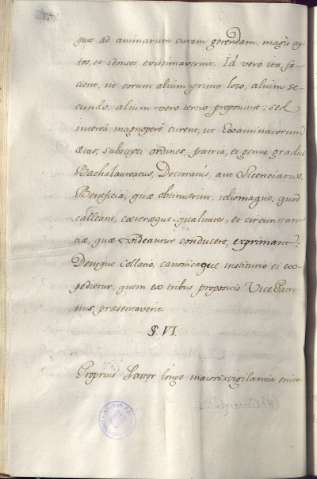 quos ad animarum curam gerendam, magis ap-
tos, et idoneos existimaverint. Id vero ita, fa-
ciant, ut eorum alium primo loco, alium se-
cundo, alium vero tertio proponant; sed
interea magnopere curent, ut Examinatorum
ætas, subscepti ordines, patria, et genus gradus
Bachalaureatus, Doctoratus, aut Licenciaturæ
Beneficia, quæ obtinuerunt, idiomaque, quod
calleant, cæteræque qualitates, et circunstan-
tiæ, quæ videantur conducere, exprimantur.
Denique Collatio, canonicaque institutio ei ex-
pedietur, quem ex tribus propositis Vice Patro-
nus præsentaverit.
§ VI.
Proprius Pastor longe maiori vigilantia